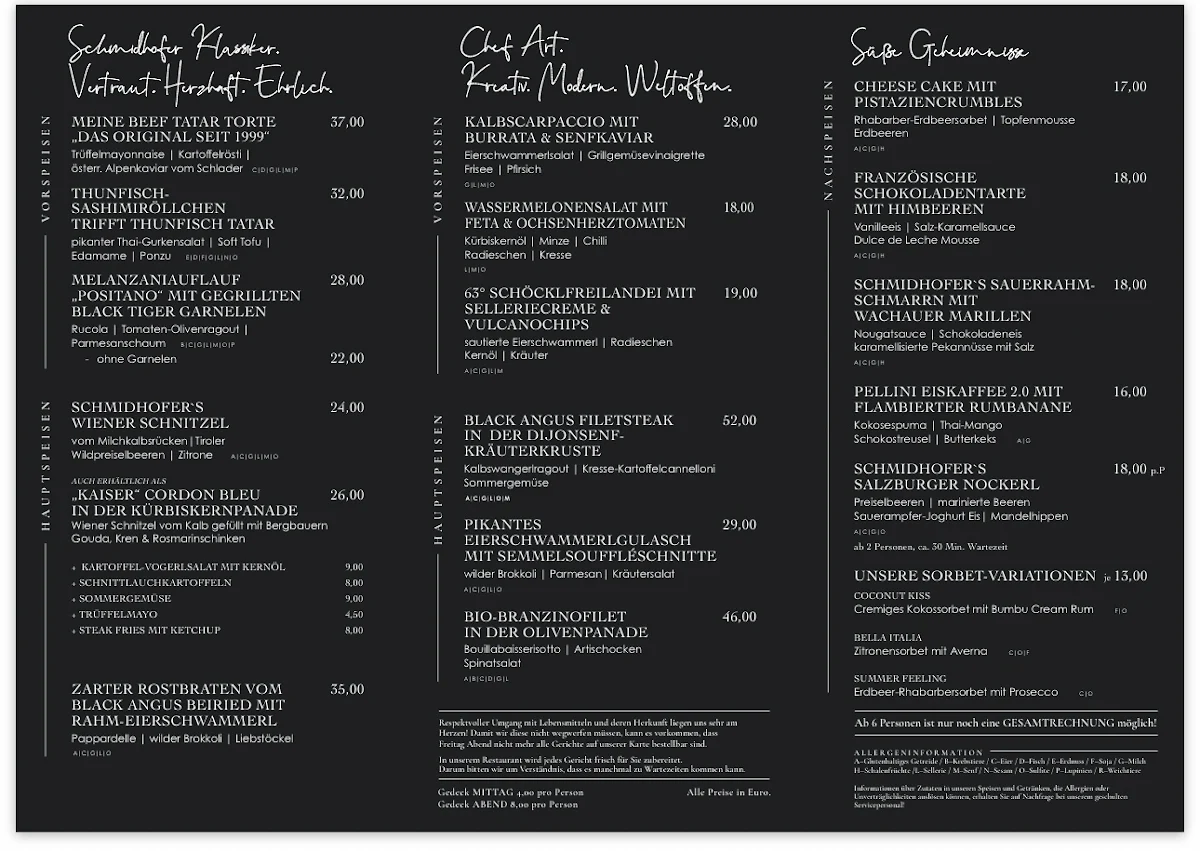 Schmidhofer Klassiker.
Vertraut. Herzhaft. Ehrlich.
VORSPEISEN
MEINE BEEF TATAR TORTE 37,00
„DAS ORIGINAL SEIT 1999“
Trüffelmayonnaise | Kartoffelrösti |
österr. Alpenkaviar vom Schlader C|D|G|L|M|P
THUNFISCH- 32,00
SASHIMIRÖLLCHEN
TRIFFT THUNFISCH TATAR
pikanter Thai-Gurkensalat | Soft Tofu |
Edamame | Ponzu E|D|F|G|L|N|O
MELANZANIAUFLAUF 28,00
„POSITANO“ MIT GEGRILLTEN
BLACK TIGER GARNELEN
Rucola | Tomaten-Olivenragout |
Parmesanschaum B|C|G|L|M|O|P
- ohne Garnelen 22,00
HAUPTSPEISEN
SCHMIDHOFER`S 24,00
WIENER SCHNITZEL
vom Milchkalbsrücken|Tiroler
Wildpreiselbeeren | Zitrone A|C|G|L|M|O
AUCH ERHÄLTLICH ALS
„KAISER“ CORDON BLEU 26,00
IN DER KÜRBISKERNPANADE
Wiener Schnitzel vom Kalb gefüllt mit Bergbauern
Gouda, Kren & Rosmarinschinken
+ KARTOFFEL-VOGERLSALAT MIT KERNÖL 9,00
+ SCHNITTLAUCHKARTOFFELN 8,00
+ SOMMERGEMÜSE 9,00
+ TRÜFFELMAYO 4,50
+ STEAK FRIES MIT KETCHUP 8,00
ZARTER ROSTBRATEN VOM 35,00
BLACK ANGUS BEIRIED MIT
RAHM-EIERSCHWAMMERL
Pappardelle | wilder Brokkoli | Liebstöckel
A|C|G|L|O
Chef Art.
Kreativ. Modern. Weltoffen.
VORSPEISEN
KALBSCARPACCIO MIT 28,00
BURRATA & SENFKAVIAR
Eierschwammerlsalat | Grillgemüsevinaigrette
Frisee | Pfirsich
G|L|M|O
WASSERMELONENSALAT MIT 18,00
FETA & OCHSENHERZTOMATEN
Kürbiskernöl | Minze | Chilli
Radieschen | Kresse
L|M|O
63° SCHÖCKLFREILANDEI MIT 19,00
SELLERIECREME &
VULCANOCHIPS
sautierte Eierschwammerl | Radieschen
Kernöl | Kräuter
A|C|G|L|M
HAUPTSPEISEN
BLACK ANGUS FILETSTEAK 52,00
IN DER DIJONSENF-
KRÄUTERKRUSTE
Kalbswangerlragout | Kresse-Kartoffelcannelloni
Sommergemüse
A|C|G|L|O|M
PIKANTES 29,00
EIERSCHWAMMERLGULASCH
MIT SEMMELSOUFFLÉSCHNITTE
wilder Brokkoli | Parmesan| Kräutersalat
A|C|G|L|O
BIO-BRANZINOFILET 46,00
IN DER OLIVENPANADE
Bouillabaisserisotto | Artischocken
Spinatsalat
A|B|C|D|G|L
Respektvoller Umgang mit Lebensmitteln und deren Herkunft liegen uns sehr am
Herzen! Damit wir diese nicht wegwerfen müssen, kann es vorkommen, dass
Freitag Abend nicht mehr alle Gerichte auf unserer Karte bestellbar sind.
In unserem Restaurant wird jedes Gericht frisch für Sie zubereitet.
Darum bitten wir um Verständnis, dass es manchmal zu Wartezeiten kommen kann.
Gedeck MITTAG 4,00 pro Person Alle Preise in Euro.
Gedeck ABEND 8,00 pro Person
Süße Geheimnisse
NACHSPEISEN
CHEESE CAKE MIT 17,00
PISTAZIENCRUMBLES
Rhabarber-Erdbeersorbet | Topfenmousse
Erdbeeren
A|C|G|H
FRANZÖSISCHE 18,00
SCHOKOLADENTARTE
MIT HIMBEEREN
Vanilleeis | Salz-Karamellsauce
Dulce de Leche Mousse
A|C|G|H
SCHMIDHOFER`S SAUERRAHM- 18,00
SCHMARRN MIT
WACHAUER MARILLEN
Nougatsauce | Schokoladeneis
karamellisierte Pekannüsse mit Salz
A|C|G|H
PELLINI EISKAFFEE 2.0 MIT 16,00
FLAMBIERTER RUMBANANE
Kokosespuma | Thai-Mango
Schokostreusel | Butterkeks A|G
SCHMIDHOFER`S 18,00 p.P
SALZBURGER NOCKERL
Preiselbeeren | marinierte Beeren
Sauerampfer-Joghurt Eis| Mandelhippen
A|C|G|O
ab 2 Personen, ca. 30 Min. Wartezeit
UNSERE SORBET-VARIATIONEN je 13,00
COCONUT KISS
Cremiges Kokossorbet mit Bumbu Cream Rum F|O
BELLA ITALIA
Zitronensorbet mit Averna C|O|F
SUMMER FEELING
Erdbeer-Rhabarbersorbet mit Prosecco C|O
Ab 6 Personen ist nur noch eine GESAMTRECHNUNG möglich!
ALLERGENINFORMATION
A–Glutenhaltiges Getreide / B–Krebstiere / C–Eier / D–Fisch / E–Erdnuss / F–Soja / G–Milch
H–Schalenfrüchte /L–Sellerie / M–Senf / N–Sesam / O–Sulfite / P–Lupinien / R–Weichtiere
Informationen über Zutaten in unseren Speisen und Getränken, die Allergien oder
Unverträglichkeiten auslösen können, erhalten Sie auf Nachfrage bei unserem geschulten
Servicepersonal!